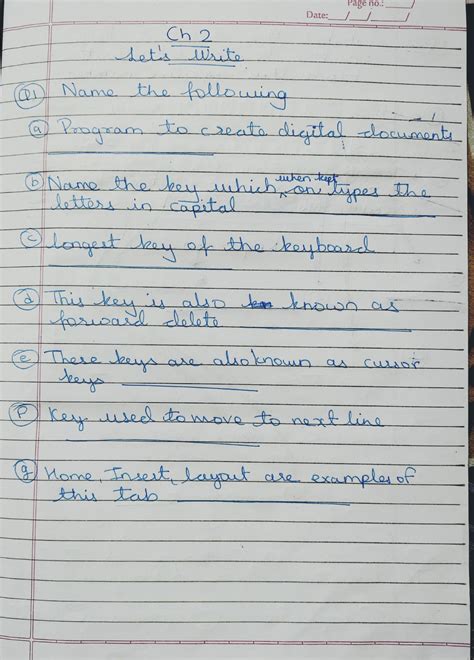 Page no.:
Date:
Ch 2
Let's Write
Q1 Name the following
a Program to create digital documents
b Name the key which when kept on types the
letters in capital
c longest key of the keyboard
d This key is also known as
forward delete
e These keys are also known as cursor
keys
P Key used to move to next line
g Home, Insert, layout are examples of
this tab